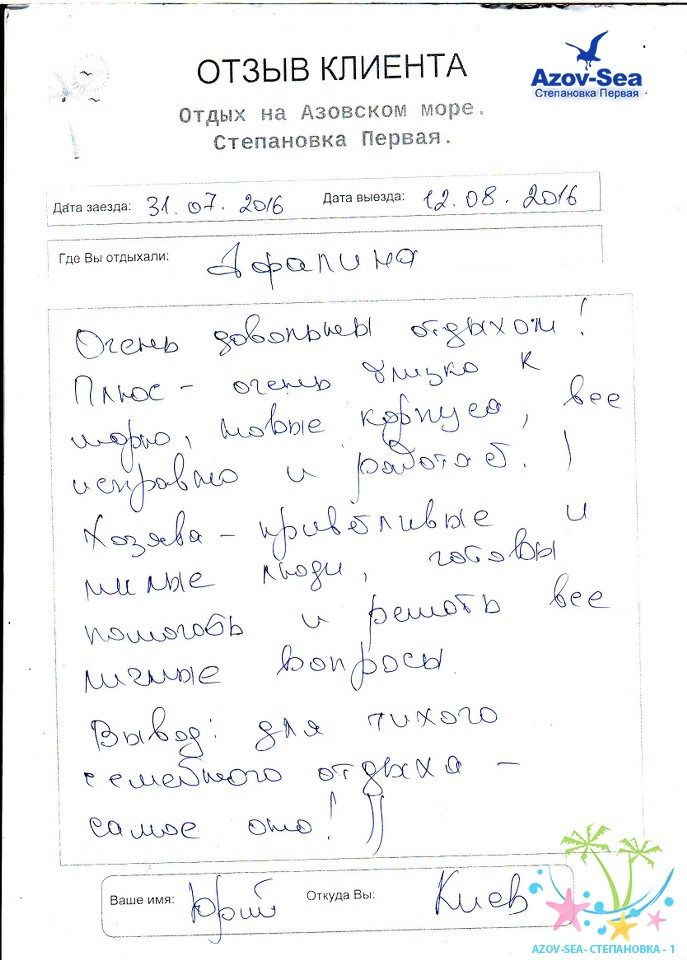 ОТЗЫВ КЛИЕНТА
Azov-Sea
Степановка Первая
Отдых на Азовском море.
Степановка Первая.
Дата заезда: 31.07.2016 Дата выезда: 12.08.2016
Где Вы отдыхали: Афалина
Очень довольны отдыхом!
Плюс - очень близко к
морю, новые корпуса, все
исправно и работает. )
Хозяева - приветливые и
милые люди, готовы
помогать и решать все
личные вопросы
Вывод: для тихого
семейного отдыха -
самое оно! ))
Ваше имя: Юрий Откуда Вы: Киев
AZOV-SEA- СТЕПАНОВКА - 1